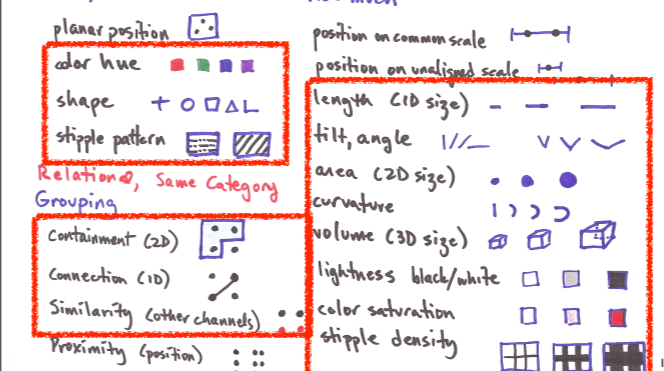 planar position
color hue
shape
stipple pattern
Relational, Same Category
Grouping
Containment (2D)
Connection (1D)
Similarity (other channels)
Proximity (position)
position on common scale
position on unaligned scale
length (1D size)
tilt, angle
area (2D size)
curvature
volume (3D size)
lightness black/white
color saturation
stipple density